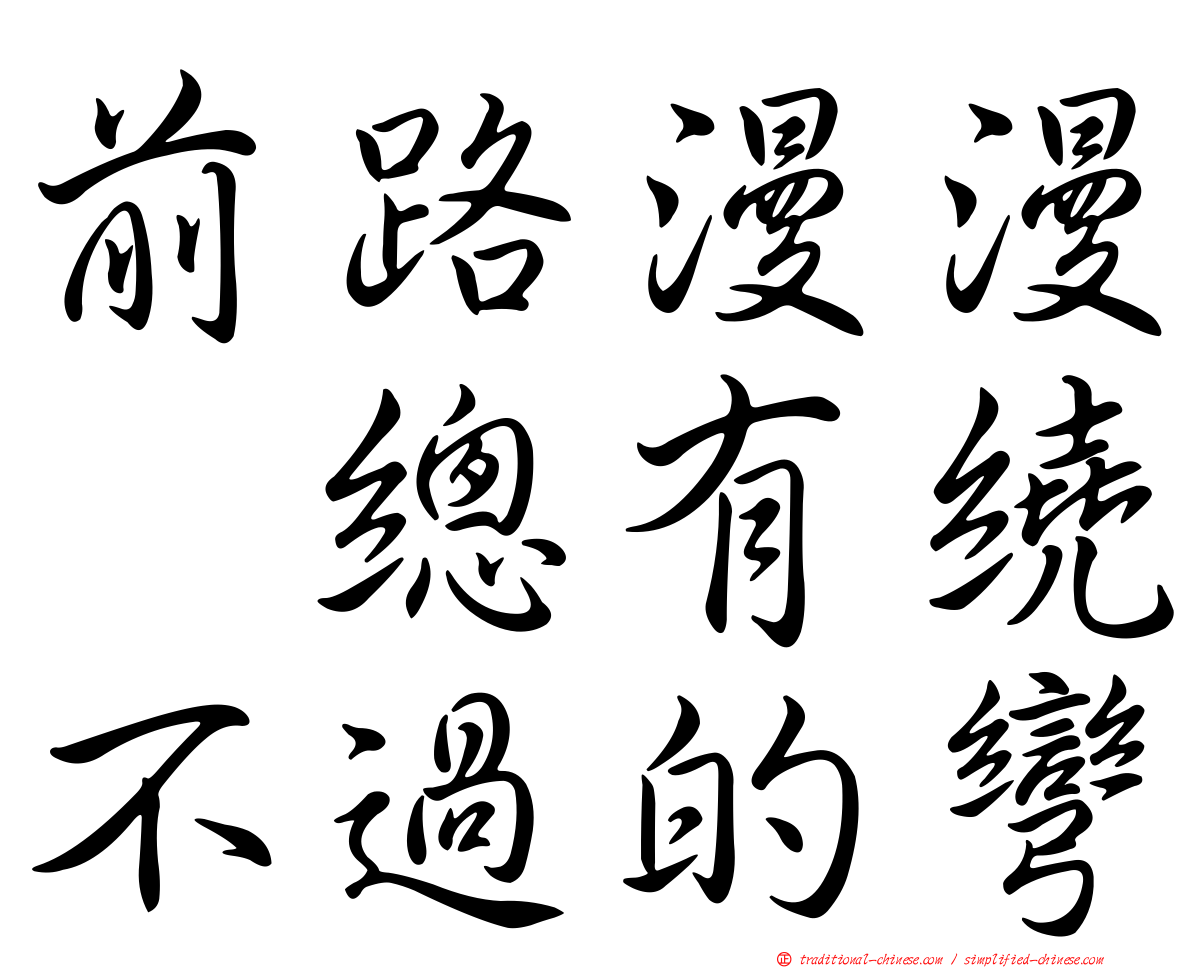 前路漫漫
總有繞
不過的彎
㊣ traditional-chinese.com / simplified-chinese.com